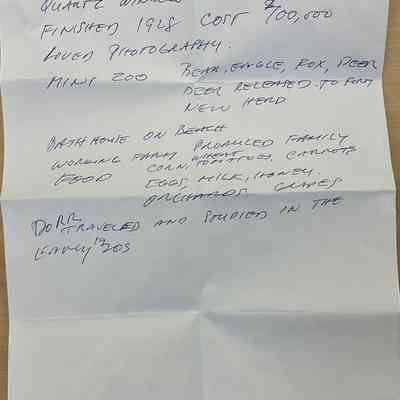 QUARTZ
FINISHED 1928 COST $100,000
LOVED PHOTOGRAPHY.
MINI ZOO BEAR, EAGLE, FOX, DEER
DEER RELEASED TO FORM
NEW HERD
BATH HOUSE ON BEACH
WORKING FARM PRODUCED FAMILY
FOOD CORN, WHEAT, POTATOES, CARROTS
EGGS, MILK, HONEY.
ORCHARDS GRAPES
DORR TRAVELED AND STUDIED IN THE
EARLY 1920S